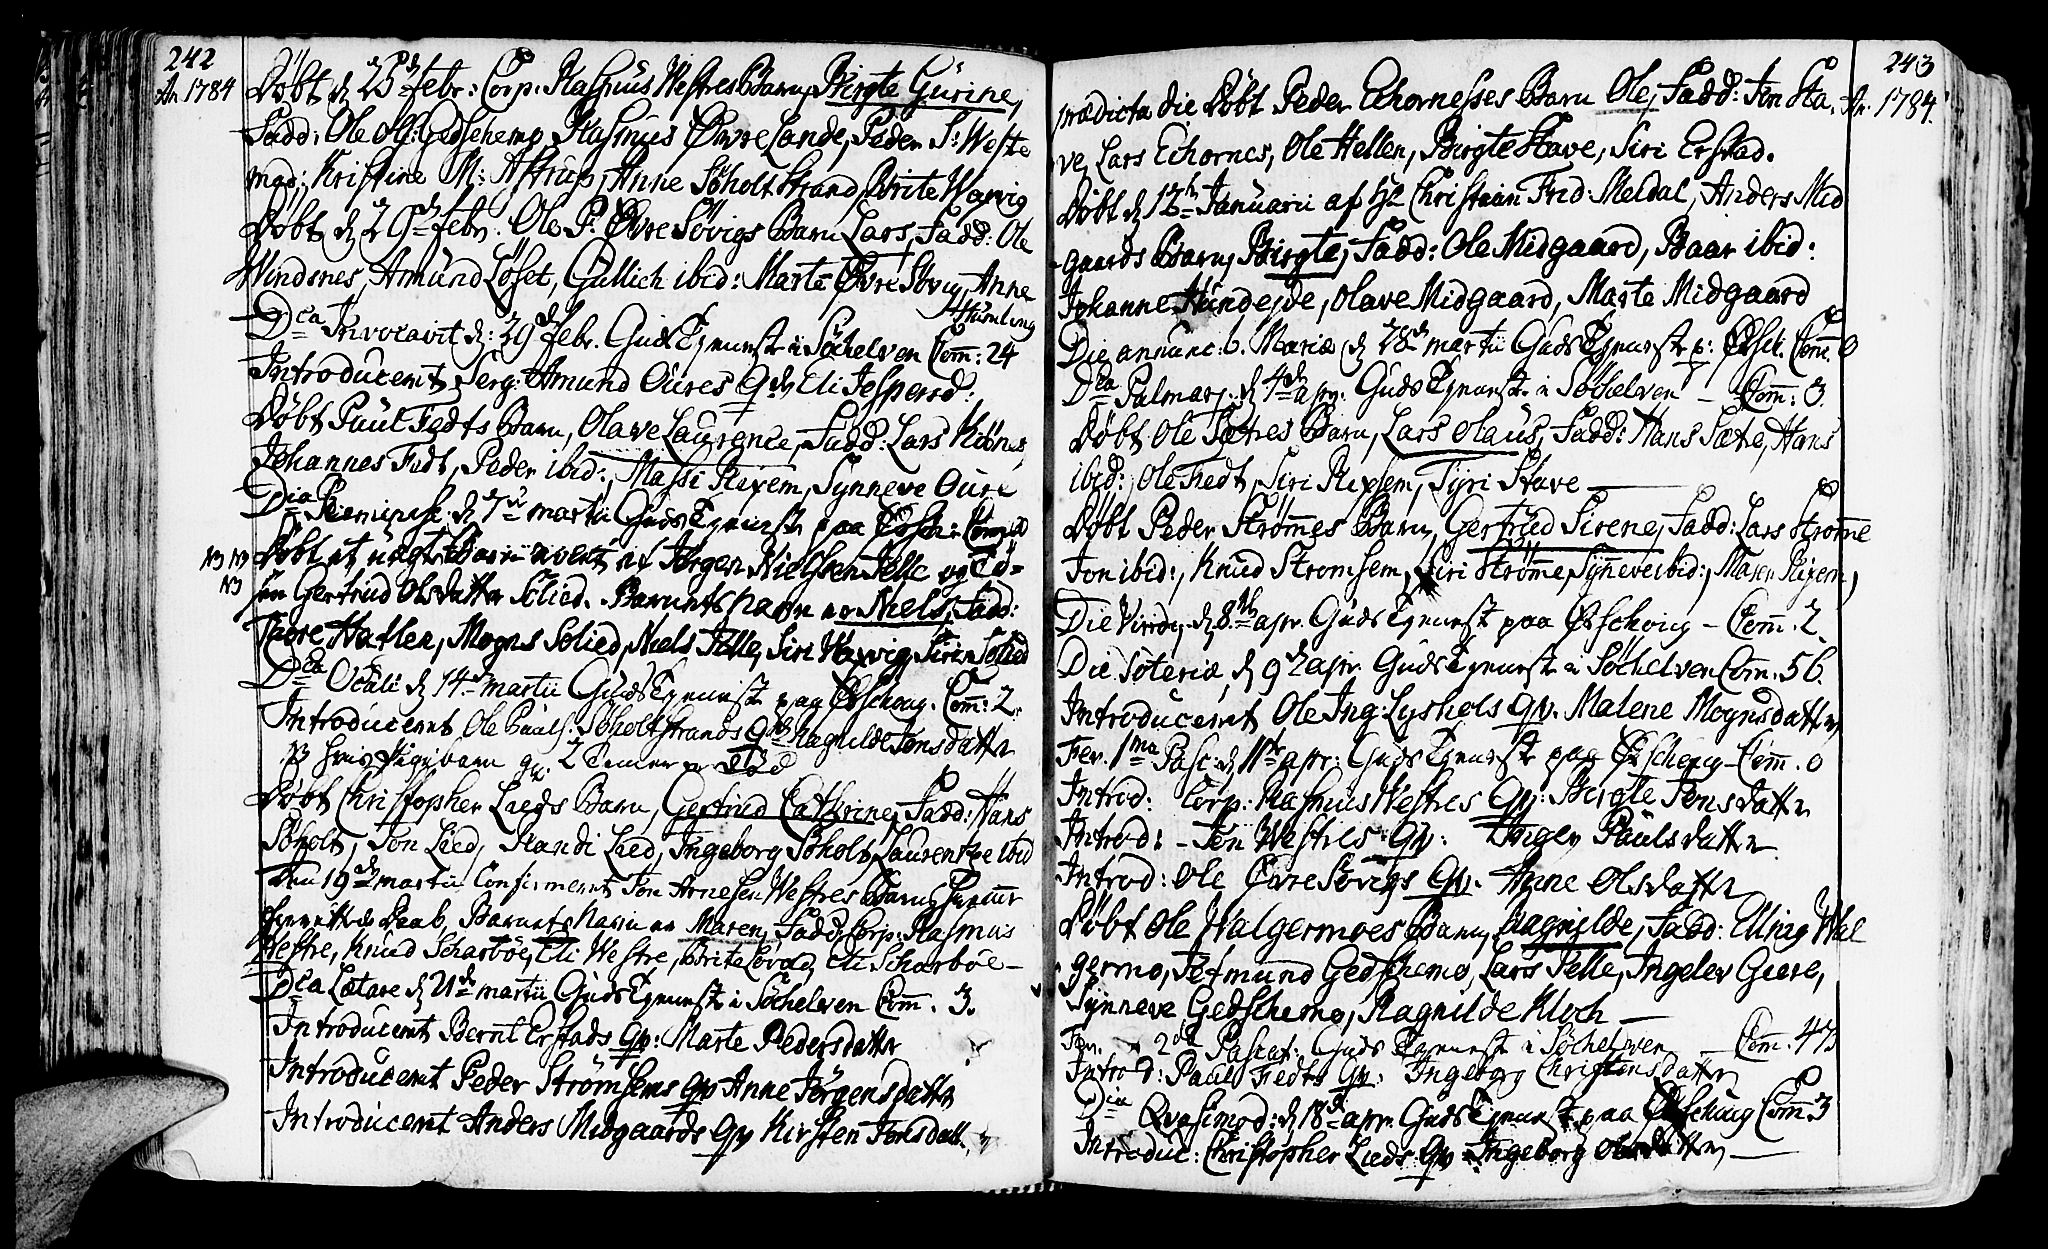 242
An 1784
Döbt d 25de febr: Corp: Rasmus Westres Barn, Birgte Gurine,
Fadd: Ole Ol: Gedschemo, Rasmus Øvre Lande, Peder S: Weste
Kristine M: Astrup, Anne Söholt Strand, Brite Warvig
Döbt d 29de febr. Ole P. Øvre Sövigs Barn Lars, Fadd: Ole
Windsnes, Amund Löset, Gullich ibid: Marte Øvre Sövig, Anne
Humling
Dca Invocavit d: 29de febr. Guds Tjeneste i Söchelven Com: 24
Introduceret Serg: Amund Oures Qv Eli Jespersd:
Döbt Paul Fedts Barn, Olave Laurence, Fadd: Lars
Johannes Fedt, Peder ibid:, Massi Rexem, Synneve Oure
Dca Reminisc. d 7de martii Guds Tjeneste paa
Döbt et uægte Barn avlet af Jörgen Nielssen Jelle og
Gertrud Olsdatter Solied. Barnets navn er Niels, Fadd:
Thore Hatlen, Mogns Solied, Niels Jelle, Siri Warvig, Siri Solied
Dca Oculi d 14de martii Guds Tjeneste paa Ørschoug. Com: 2
Introduceret Ole Pauls: Söholtstrands Qv Ragnilde Jonsdatter
NB hvis Pigebarn
Döbt Christopher Lieds Barn, Gertrud Cathrine, Fadd: Hans
Söholt, Jon Lied, Randi Lied, Ingeborg Söholt, Laurentze ibid
Den 19de martii Confirmeret Jon Arnesen Westres Barn,
Daab, Barnets Navn er Maren, Fadd: Corp: Rasmus
Westre, Knud Scharböe, Eli Westre, Brite Lövold, Eli Scharböe
Dca Lætare d 21de martii Guds Tjeneste i Söchelven Com. 3.
Introduceret Bernt Erstads Qv: Marte Pedersdatter
Introduceret Peder Strömsems Qv Anne Jörgensdatter
Introduceret Anders Midgaards Qv Kirsten Jonsdatt.
243
An. 1784.
prædicta die Döbt Peder Echornesses Barn Ole, Fadd: Jon Sta-
ve, Lars Echornes, Ole Hellen, Birgte Stave, Siri Erstad.
Döbt d 12te Januarii af Hr Christian Frid: Meldal, Anders Mid
gaards Barn, Birgte, Fadd: Ole Midgaard, Baar ibid:
Johanne Hundejde, Olave Midgaard, Marte Midgaard
Die annunc. b. Mariæ d 28de martii Guds Tjeneste p: Ørsch. Com. 0
Dca Palmar: d 4de apr: Guds Tjeneste i Söchelven - Com: 3.
Döbt Ole Sætres Barn, Lars Olaus, Fadd: Hans Sæte, Hans
ibid:, Ole Fedt, Siri Rexsem, Tyri Stave
Döbt Peder Strömmes Barn, Gertrud Sirene, Fadd: Lars Strömme
Jon ibid:, Knud Stromsem, Siri Strömme, Synneve ibid:, Maren Rixem,
Die Virid: d 8de apr. Guds Tjeneste paa Ørschoug - Com. 2.
Die Soteriæ, d 9de apr. Guds Tjeneste i Söchelven Com. 56.
Introduceret Ole Ing: Lyshols Qv. Malene Mognsdatter
Fer. 1ma Pasc: d 11te apr: Guds Tjeneste paa Ørschoug - Com. 0
Introd: Corp: Rasmus Westres Qv: Birgte Jonsdatter
Introd: - Jon Westres Qv: Inger Paulsdatter
Introd: Ole Øvre Sövigs Qv. Anne Olsdatter
Döbt Ole Walgermoes Barn, Ragnilde, Fadd: Elling Wal
germo, Jetmund Gedschemo, Lars Jelle, Ingelev Giere,
Synneve Gedschemo, Ragnilde Kloch
Fer. 2da Pascat: Guds Tjeneste i Söchelven - Com. 47
Introd: Paul Fedts Qv: Ingeborg Christensdatter
Dca Qvasimod: d 18de apr. Guds Tjeneste paa Ørschoug Com: 3
Introduc: Christopher Lieds Qv Ingeborg Olesdatter